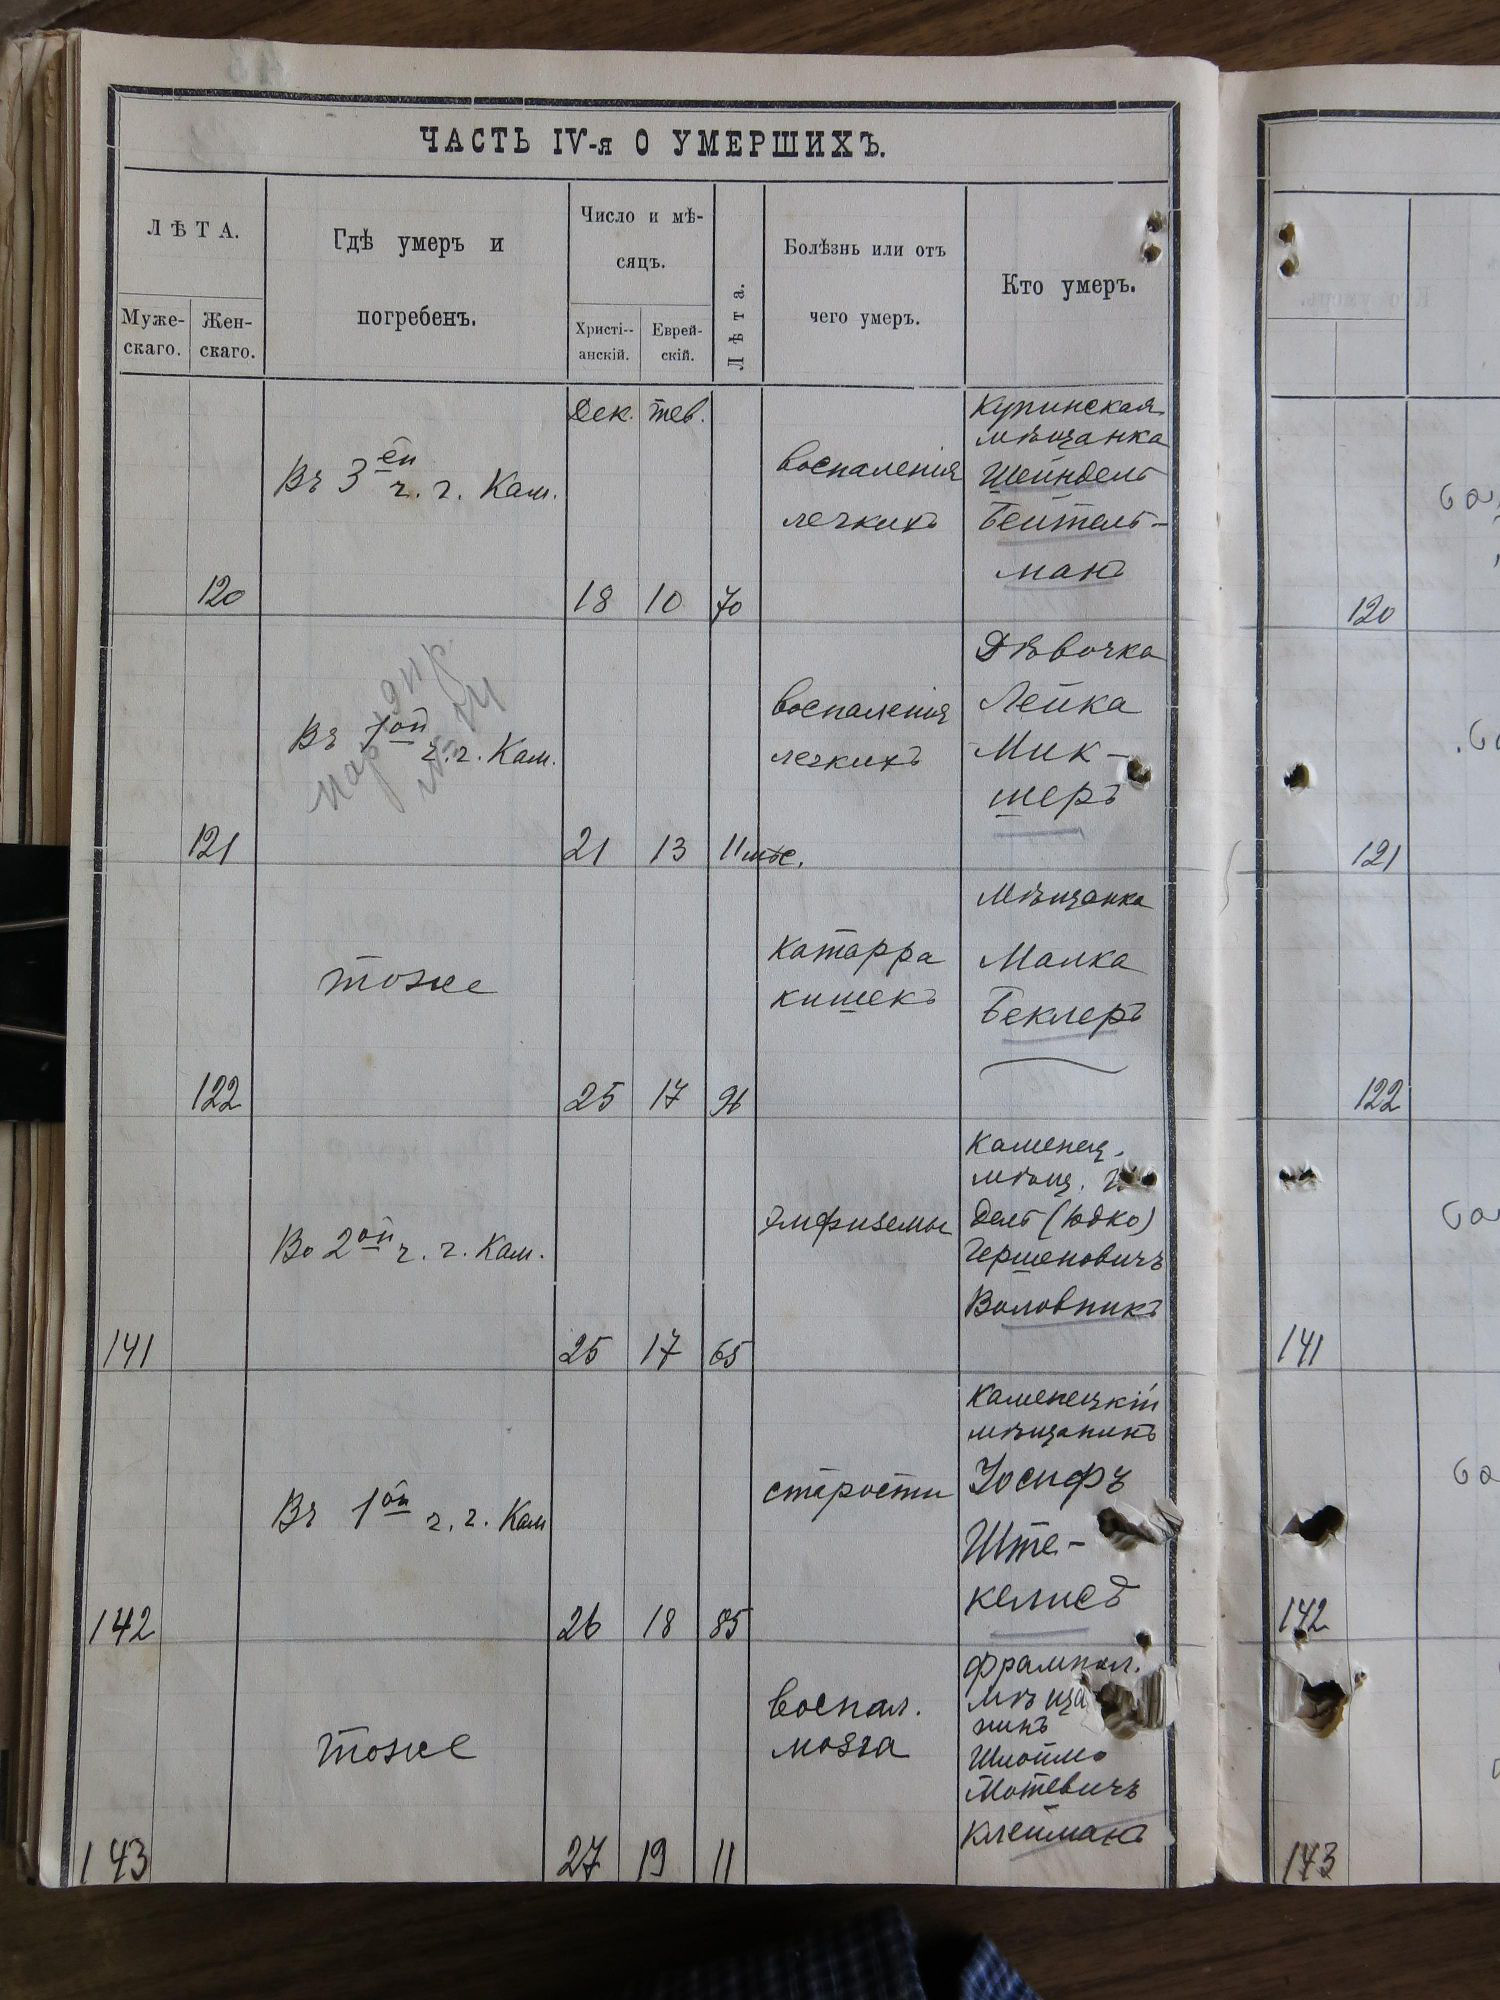 ЧАСТЬ IV-я О УМЕРШИХЪ.
ЛѢТА.
Муже-
скаго.
Жен-
скаго.
Гдѣ умеръ и
погребенъ.
Число и мѣ-
сяцъ.
Христі-
анскій.
Еврей-
скій.
Лѣта.
Болѣзнь или отъ
чего умеръ.
Кто умеръ.
120
Въ 3ей ч. г. Кам.
Дек. Тев.
18 10 70
воспаленія
легкихъ
Купинская
мѣщанка
Шейндель
Бейтель-
манъ
120
121
Въ 1ой ч. г. Кам.
21 13 11 мѣс.
воспаленія
легкихъ
Дѣвочка
Лейка
Мик-
шеръ
121
122
тоже
25 17
катарра
кишекъ
Мѣщанка
Малка
Беклеръ
122
141
Во 2ой ч. г. Кам.
25 17 65
эмфиземы
Каменец.
мѣщ.
дель (Юдко)
Гершеновичъ
Воловникъ
141
142
Въ 1ой ч. г. Кам
26 18 85
старости
Каменецкій
мѣщанинъ
Іосифъ
Ште-
142
143
тоже
27 19 11
воспал.
мозга
Фрампол.
мѣща
нинъ
Шлоймо
Мотевичъ
Клейманъ
143